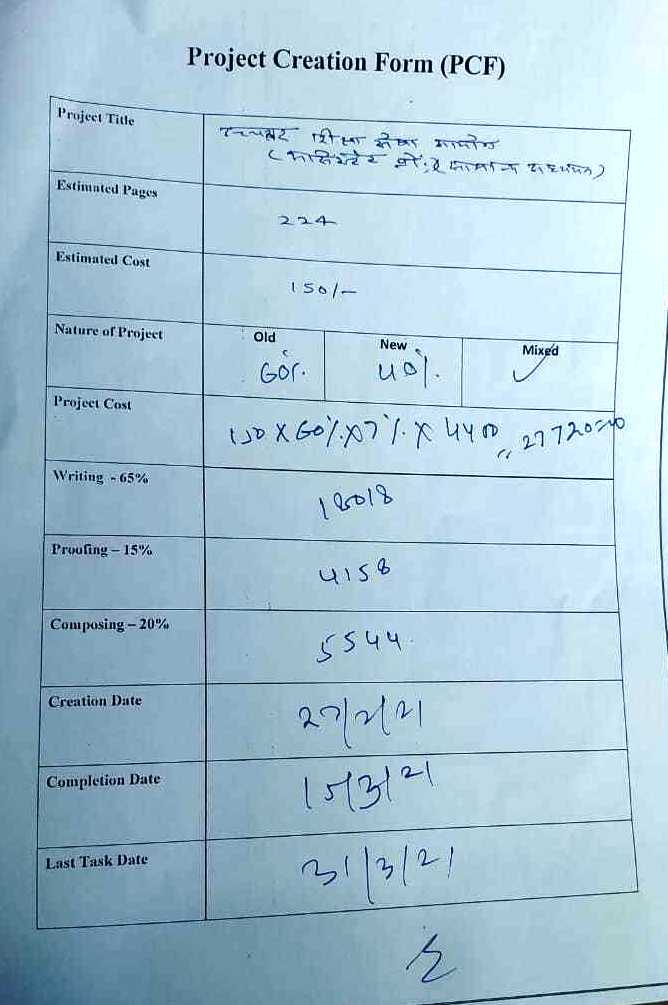 Project Creation Form (PCF)
Project Title
परीक्षा सेवा आयोग
सामान्य अध्ययन)
Estimated Pages
224
Estimated Cost
150/-
Nature of Project
Old
New
Mixed
60%.
40%.
✓
Project Cost
150 X 60%. X 7%. X 4400 = 27720=00
Writing - 65%
18018
Proofing – 15%
4158
Composing – 20%
5544
Creation Date
27/2/21
Completion Date
15/3/21
Last Task Date
31/3/21